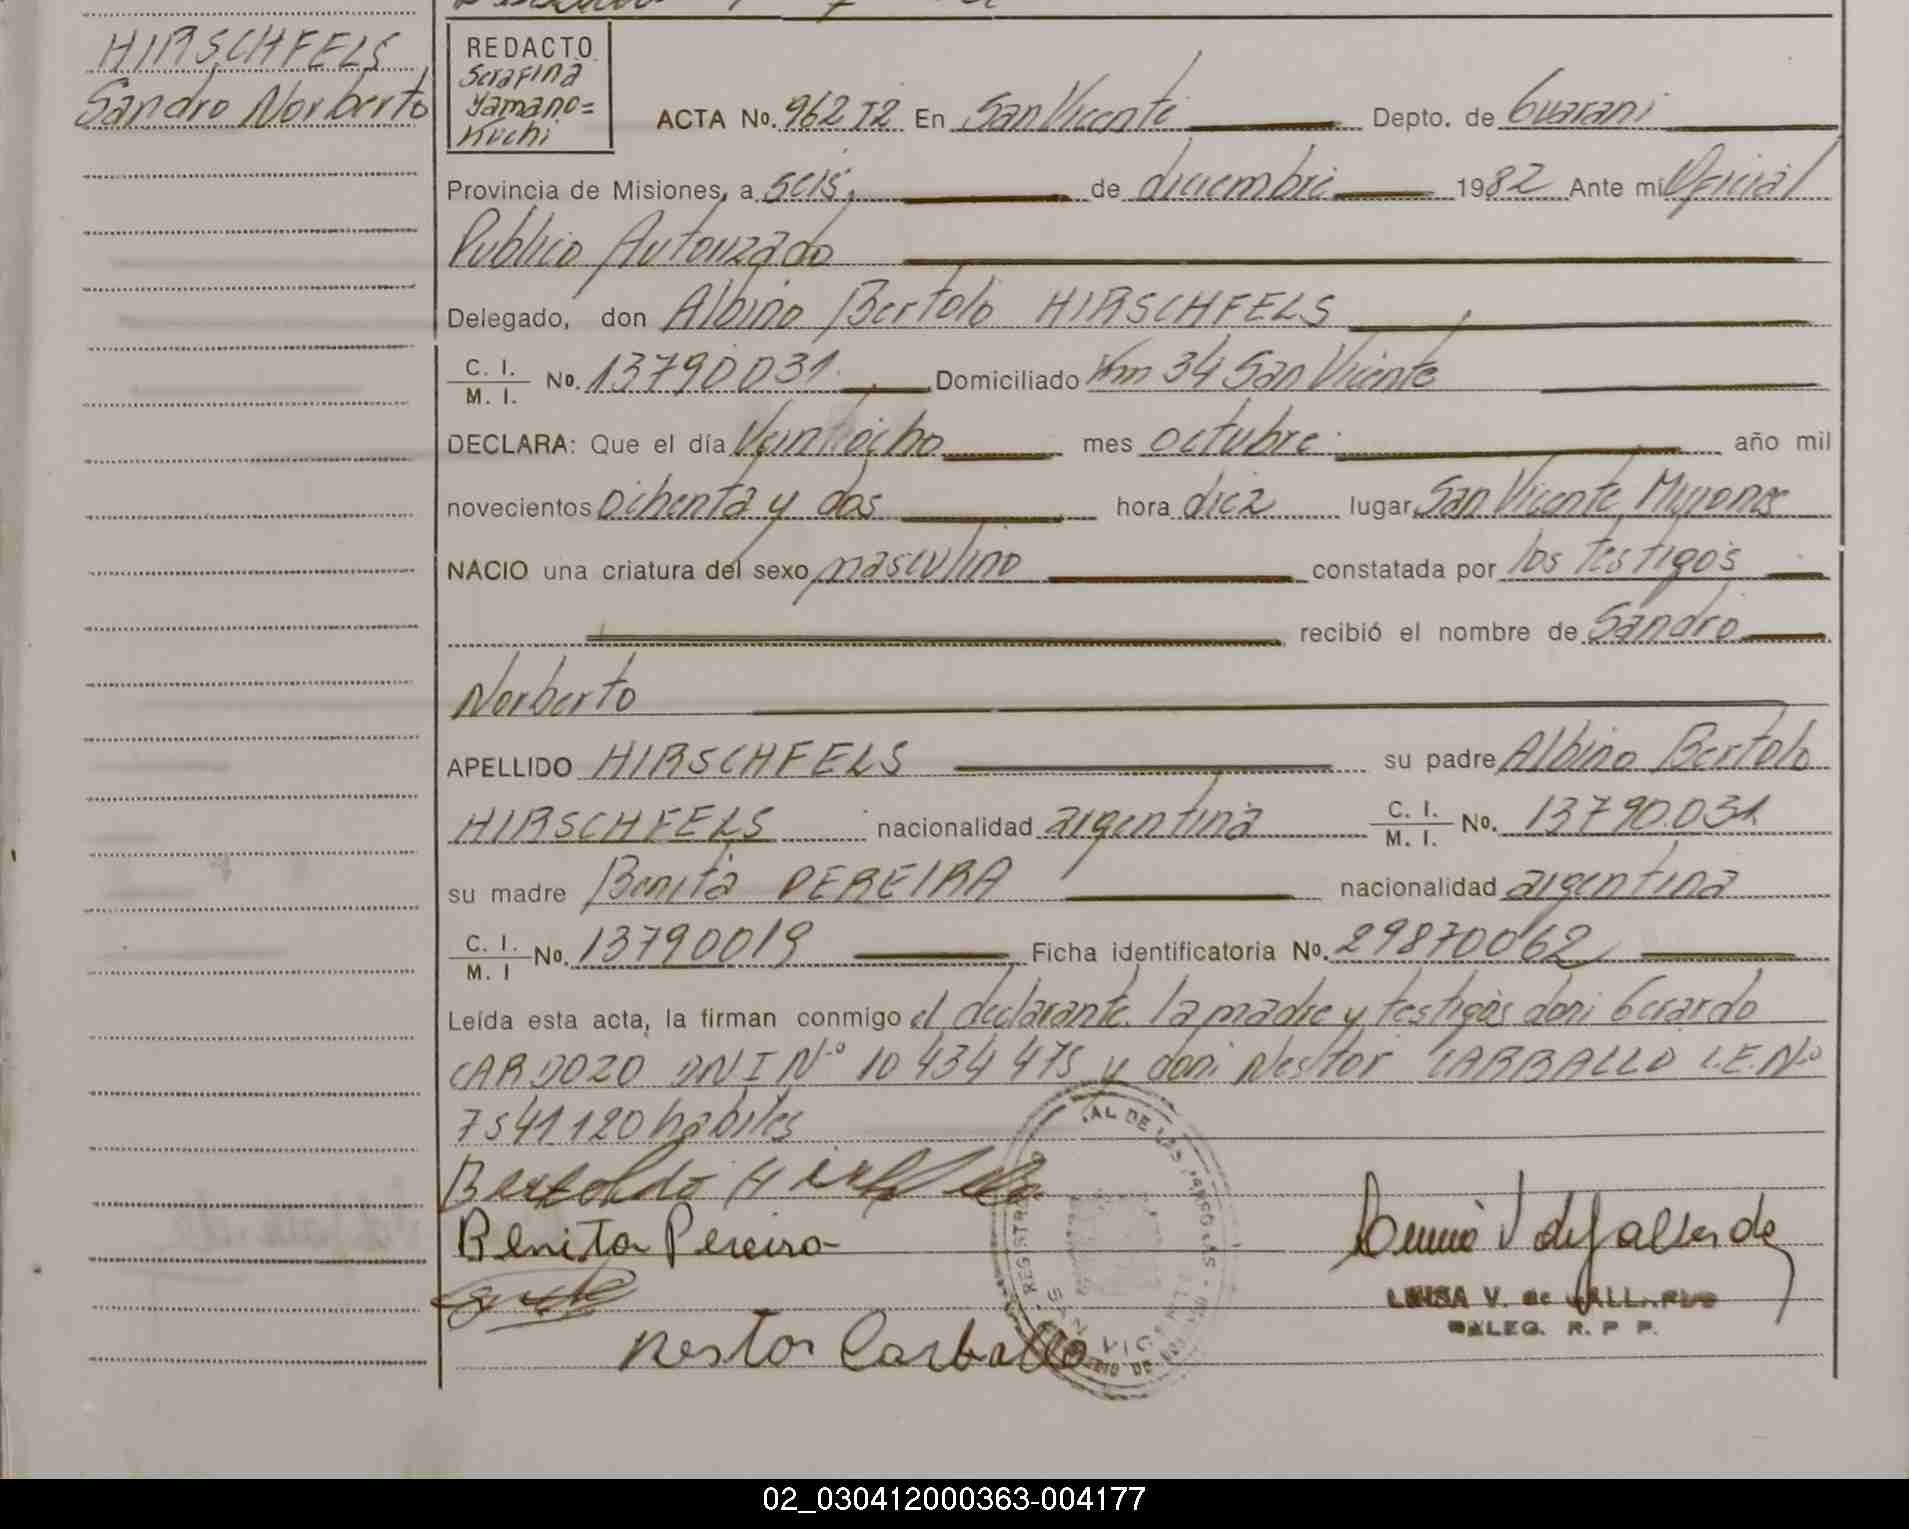 HIRSCHFELS
Sandro Norberto
REDACTO
Serafina
Yamano=
Kuchi
ACTA No. 962 T2 En San Vicente Depto. de Guarani
Provincia de Misiones, a seis de diciembre 1982 Ante mi Oficial
Publico Autorizado
Delegado, don Albino Bertolo HIRSCHFELS
C. I.
M. I. No. 13790031 Domiciliado Km 34 San Vicente
DECLARA: Que el día Veintiocho mes octubre año mil
novecientos ochenta y dos hora diez lugar San Vicente Misiones
NACIO una criatura del sexo masculino constatada por los testigos
recibió el nombre de Sandro
Norberto
APELLIDO HIRSCHFELS su padre Albino Bertolo
HIRSCHFELS nacionalidad argentina C. I.
M. I. No. 13790.031
su madre Benita PEREIRA nacionalidad argentina
C. I.
M. I No. 13790019 Ficha identificatoria No. 29870062
Leída esta acta, la firman conmigo el declarante, la madre y testigos don: Gerardo
CARDOZO DNI Nº 10 434 475 y don: Nestor CARBALLO L.E.Nº
7541120 habiles
Benita Pereira
Nestor Carballo
LUISA V. de GALLARDO
DELEG. R. P P.
02_030412000363-004177